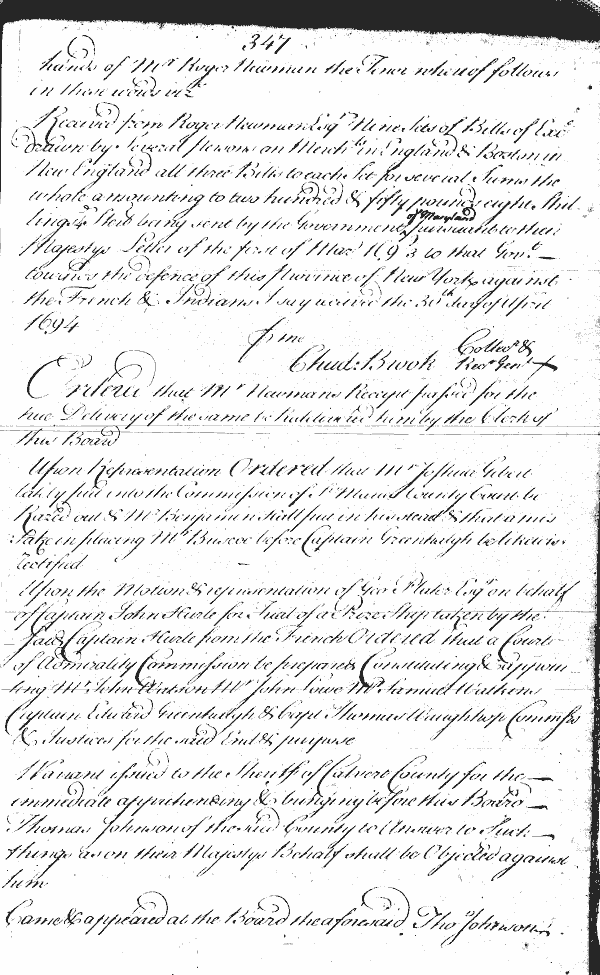 347
hands of Mr Roger Newman the Tenor whereof follows
in these words vizt
Received from Roger Newman Esqr Nine Sets of Bills of Exca
drawn by Several Persons on Merchts in England & Boston in
New England all three Bills to each Set for several Sums the
whole amounting to two hundred & fifty pounds eight Shil
lings Sterl being sent by the Government of Maryland pursuant to their
Majestys Letter of the first of Mar 1693 to that Govt
towards the defence of this Province of New York against
the French & Indians I say received the 30th day of April
1694
p me
Chid: Brook Collecr &
Recr Genl
Ordered that Mr Newmans Receipt passed for the
true Delivery of the same be redelivered him by the Clerk of
this Board
Upon Representation Ordered that Mr Joshua Gibert
lately put into the Commission of St Maries County Court be
Razed out & Mr Benjamin Hall put in his stead & that a mis
take in placing Mr Buscoe before Captain Greenhalgh be likewise
rectified
Upon the Motion & representation of Geo Plater Esqr on behalf
of Captain John Hurle for Trial of a Prize Ship taken by the
said Captain Hurle from the French Ordered that a Court
of Admirality Commission be prepared Constituting & appoin
ting Mr John Watson Mr John Lowe Mr Samuel Watkins
Captain Edward Greenhalgh & Capt Thomas Waughhop Commissrs
& Justices for the said End & purpose
Warrant issued to the Sheriff of Calvert County for the
immediate apprehending & bringing before this Board
Thomas Johnson of the said County to Answer to Such
things as on their Majestys Behalf shall be Objected against
him
Came & appeared at the Board the aforesaid Thos Johnson